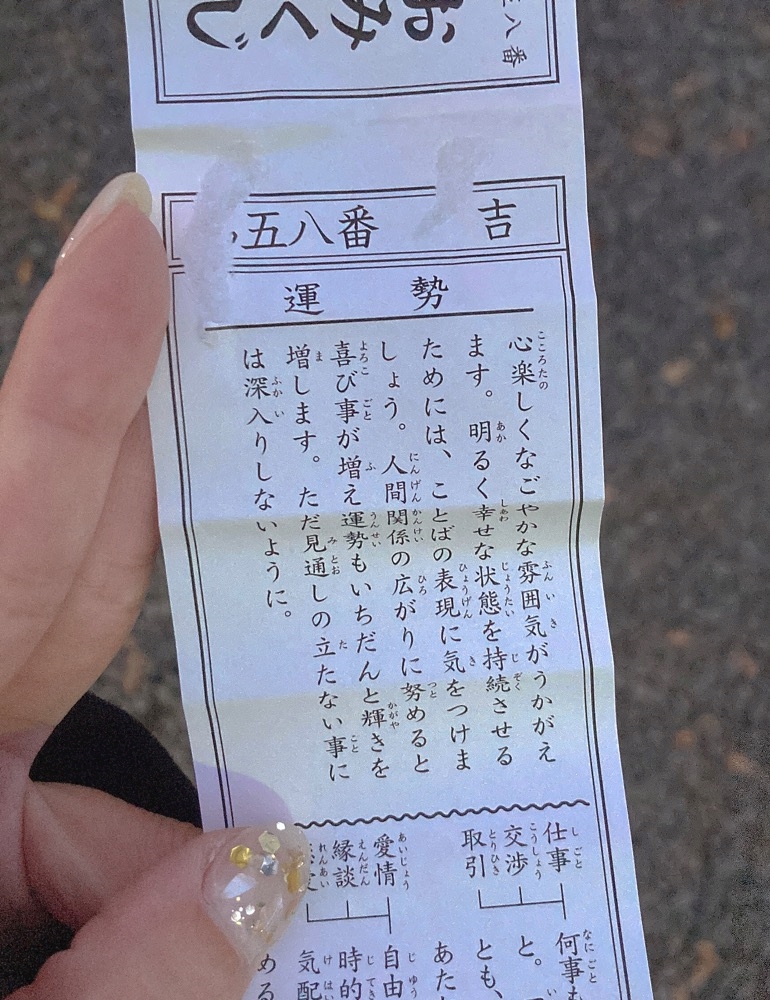 八番
おみくじ
五八番 吉
運勢
心楽しくなごやかな雰囲気がうかがえ
ます。明るく幸せな状態を持続させる
ためには、ことばの表現に気をつけま
しょう。人間関係の広がりに努めると
喜び事が増え運勢もいちだんと輝きを
増します。ただ見通しの立たない事に
は深入りしないように。
仕事
交渉
取引
愛情
縁談
何事も
と。
とも、
あた
自由
時的
気配
める